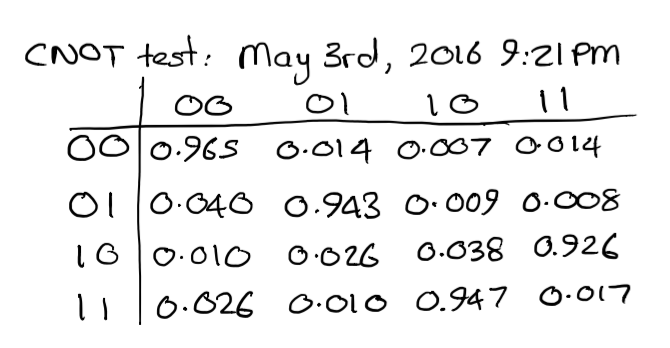 CNOT test: May 3rd, 2016 9:21pm
00 01 10 11
00 0.965 0.014 0.007 0.014
01 0.040 0.943 0.009 0.008
10 0.010 0.026 0.038 0.926
11 0.026 0.010 0.947 0.017